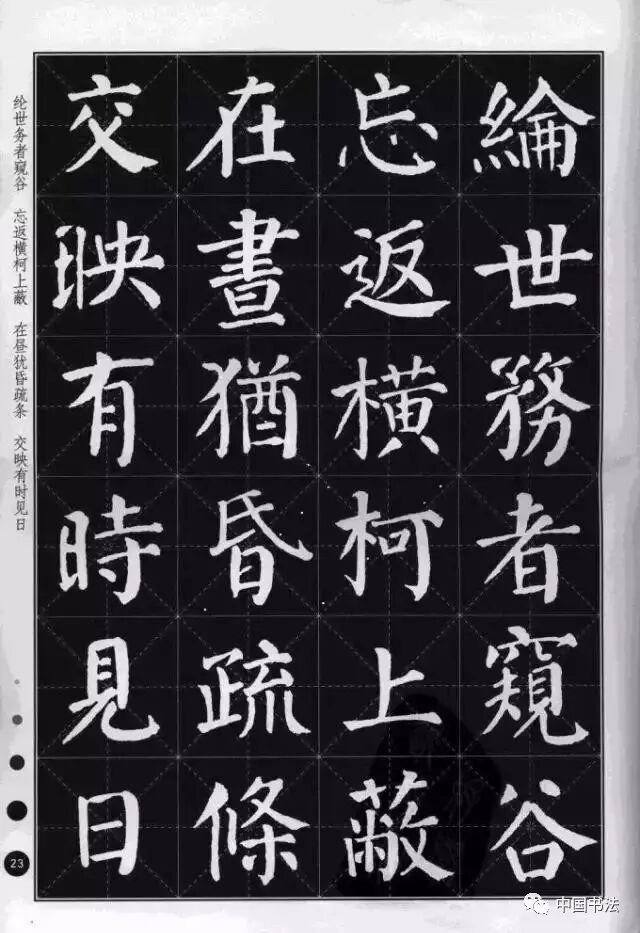 綸世務者窺谷
忘返橫柯上蔽
在晝猶昏疏條
交映有時見日
纶世务者窥谷 忘返横柯上蔽 在昼犹昏疏条 交映有时见日
23
中国书法